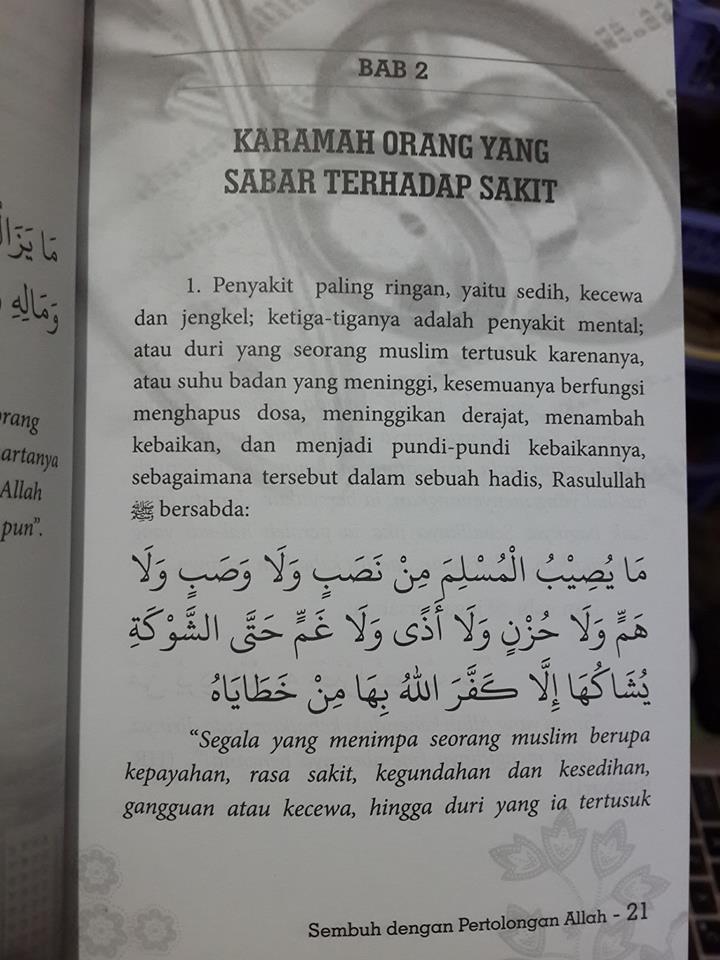 مَا يَزَالُ
وَمَالِهِ
orang
artanya
Allah
pun”.
BAB 2
KARAMAH ORANG YANG
SABAR TERHADAP SAKIT
1. Penyakit paling ringan, yaitu sedih, kecewa
dan jengkel; ketiga-tiganya adalah penyakit mental;
atau duri yang seorang muslim tertusuk karenanya,
atau suhu badan yang meninggi, kesemuanya berfungsi
menghapus dosa, meninggikan derajat, menambah
kebaikan, dan menjadi pundi-pundi kebaikannya,
sebagaimana tersebut dalam sebuah hadis, Rasulullah
ﷺ bersabda:
مَا يُصِيْبُ الْمُسْلِمَ مِنْ نَصَبٍ وَلَا وَصَبٍ وَلَا
هَمٍّ وَلَا حُزْنٍ وَلَا أَذًى وَلَا غَمٍّ حَتَّى الشَّوْكَةِ
يُشَاكُهَا إِلَّا كَفَّرَ اللهُ بِهَا مِنْ خَطَايَاهُ
“Segala yang menimpa seorang muslim berupa
kepayahan, rasa sakit, kegundahan dan kesedihan,
gangguan atau kecewa, hingga duri yang ia tertusuk
Sembuh dengan Pertolongan Allah - 21